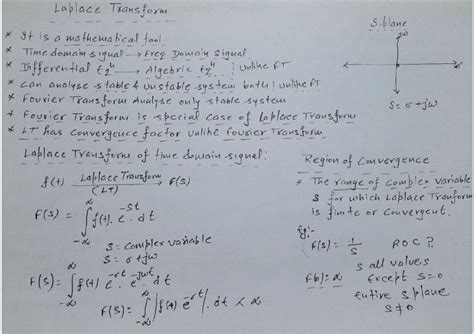 Laplace Transform
* It is a mathematical tool.
* Time domain signal → Freq Domain Signal
* Differential Eqⁿ → Algebric Eqⁿ | unlike FT
* Can analyse stable & unstable system both | unlike FT
* Fourier Transform Analyse only stable system
* Fourier Transform is special case of Laplace Transform
* LT has convergence factor unlike Fourier Transform
Laplace Transform of time domain signal:
f(t) Laplace Transform (LT) → F(s)
F(s) = ∫_{-∞}^{∞} f(t). e^{-st}. dt
S = Complex variable
S = σ + jω
F(s) = ∫_{-∞}^{∞} f(t) e^{-σt}. e^{-jωt}. dt
F(s) = ∫_{-∞}^{∞} |f(t) e^{-σt}|. dt < ∞
S-plane
jω
σ
S = σ + jω
Region of Convergence
* The range of complex variable
S for which Laplace Tranform
is finite or convergent.
Eg:-
F(s) = 1/S ROC ?
S all values
F(0) = ∞ Except S=0
Entire S plane
S ≠ 0